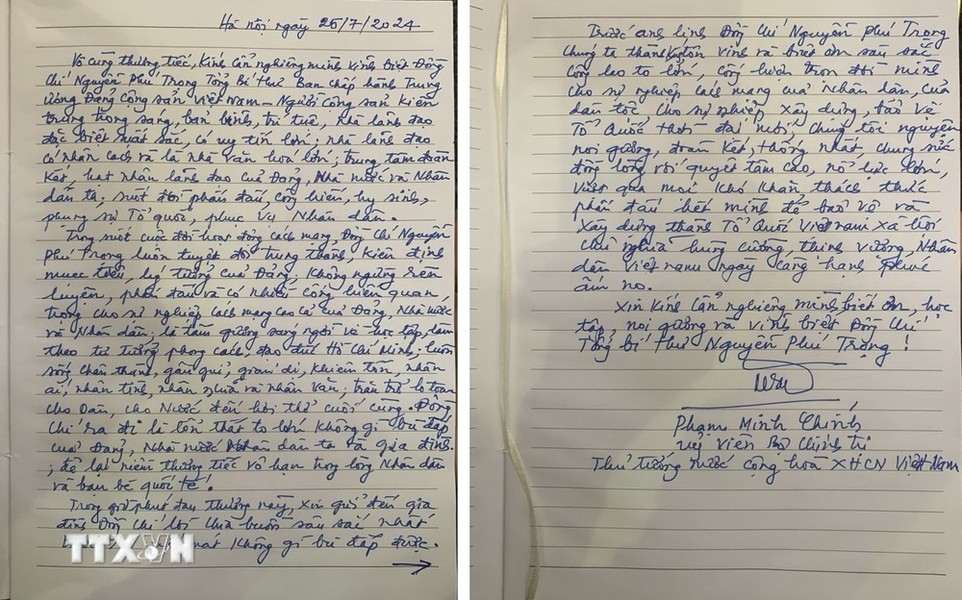 Hà nội, ngày 25/7/2024
Vô cùng thương tiếc, Kính cẩn nghiêng mình vĩnh biệt Đồng
Chí Nguyễn Phú Trọng Tổng Bí thư Ban chấp hành Trung
ương Đảng Cộng sản Việt Nam - Người cộng sản kiên
trung trong sáng, bản lĩnh, trí tuệ; nhà lãnh đạo
đặc biệt xuất sắc, có uy tín lớn; nhà lãnh đạo
có nhân cách và là nhà văn hoá lớn; trung tâm đoàn
kết, hạt nhân lãnh đạo của Đảng, Nhà nước và Nhân
dân ta; suốt đời phấn đấu, cống hiến, hy sinh,
phụng sự Tổ quốc, phục vụ Nhân dân.
Trong suốt cuộc đời hoạt động cách mạng, Đồng Chí Nguyễn
Phú Trọng luôn tuyệt đối trung thành, kiên định
mục tiêu, lý tưởng của Đảng; Không ngừng rèn
luyện, phấn đấu và có nhiều cống hiến quan
trọng cho sự nghiệp cách mạng cao cả của Đảng, Nhà nước
và Nhân dân; là tấm gương sáng ngời về học tập, làm
theo tư tưởng, phong cách, đạo đức Hồ Chí Minh; luôn
sống chân thành, gần gũi, giản dị, khiêm tốn, nhân
ái, nhân tình, nhân nghĩa và nhân văn; trăn trở lo toan
cho Dân, cho Nước đến hơi thở cuối cùng. Đồng
Chí ra đi là tổn thất to lớn không gì bù đắp
của Đảng, Nhà nước, Nhân dân ta và gia đình
; để lại niềm thương tiếc vô hạn trong lòng Nhân dân
và bạn bè quốc tế!
Trong giờ phút đau thương này, xin gửi đến gia
đình Đồng Chí lời chia buồn sâu sắc nhất
mát không gì bù đắp được.
TTXVN
Trước anh linh Đồng Chí Nguyễn Phú Trọng
chúng ta thành kính tôn vinh và biết ơn sâu sắc
công lao to lớn, cống hiến trọn đời mình
cho sự nghiệp cách mạng của Nhân dân, của
dân tộc, cho sự nghiệp xây dựng, bảo vệ
Tổ Quốc thời đại mới; chúng tôi nguyện
noi gương, đoàn kết, thống nhất, chung sức
đồng lòng với quyết tâm cao, nỗ lực lớn,
vượt qua mọi khó khăn thách thức
phấn đấu hết mình để bảo vệ và
xây dựng thành Tổ Quốc Việt nam xã hội
chủ nghĩa hùng cường, thịnh vượng, Nhân
dân Việt nam ngày càng hạnh phúc
ấm no.
Xin kính cẩn nghiêng mình biết ơn, học
tập, noi gương và vĩnh biệt Đồng Chí
Tổng bí thư Nguyễn Phú Trọng!
Phạm Minh Chính
uỷ viên Bộ Chính trị
Thủ tướng nước cộng hoà XHCN Việt Nam